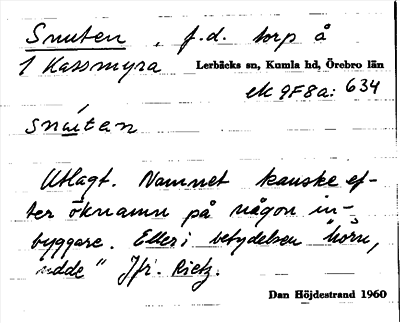 Snuten, f.d. torp å
1 Kassmyra Lerbäcks sn, Kumla hd, Örebro län
ek 9F8a: 634
snu̲tan
Utlagt. Namnet kanske ef-
ter öknamn på någon in-
byggare. Eller i betydelsen "hörn,
udde" Jfr. Rietz.
Dan Höjdestrand 1960